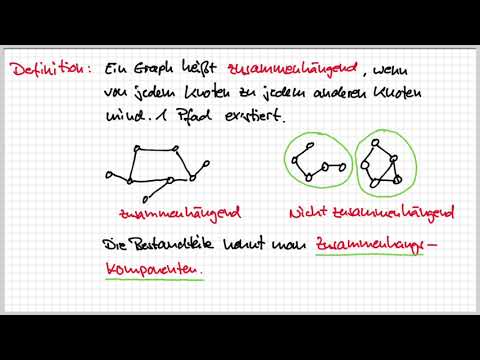 Definition: Ein Graph heißt zusammenhängend, wenn
von jedem Knoten zu jedem anderen Knoten
mind. 1 Pfad existiert.
zusammenhängend
Nicht zusammenhängend
Die Bestandteile nennt man Zusammenhangs-
komponenten.